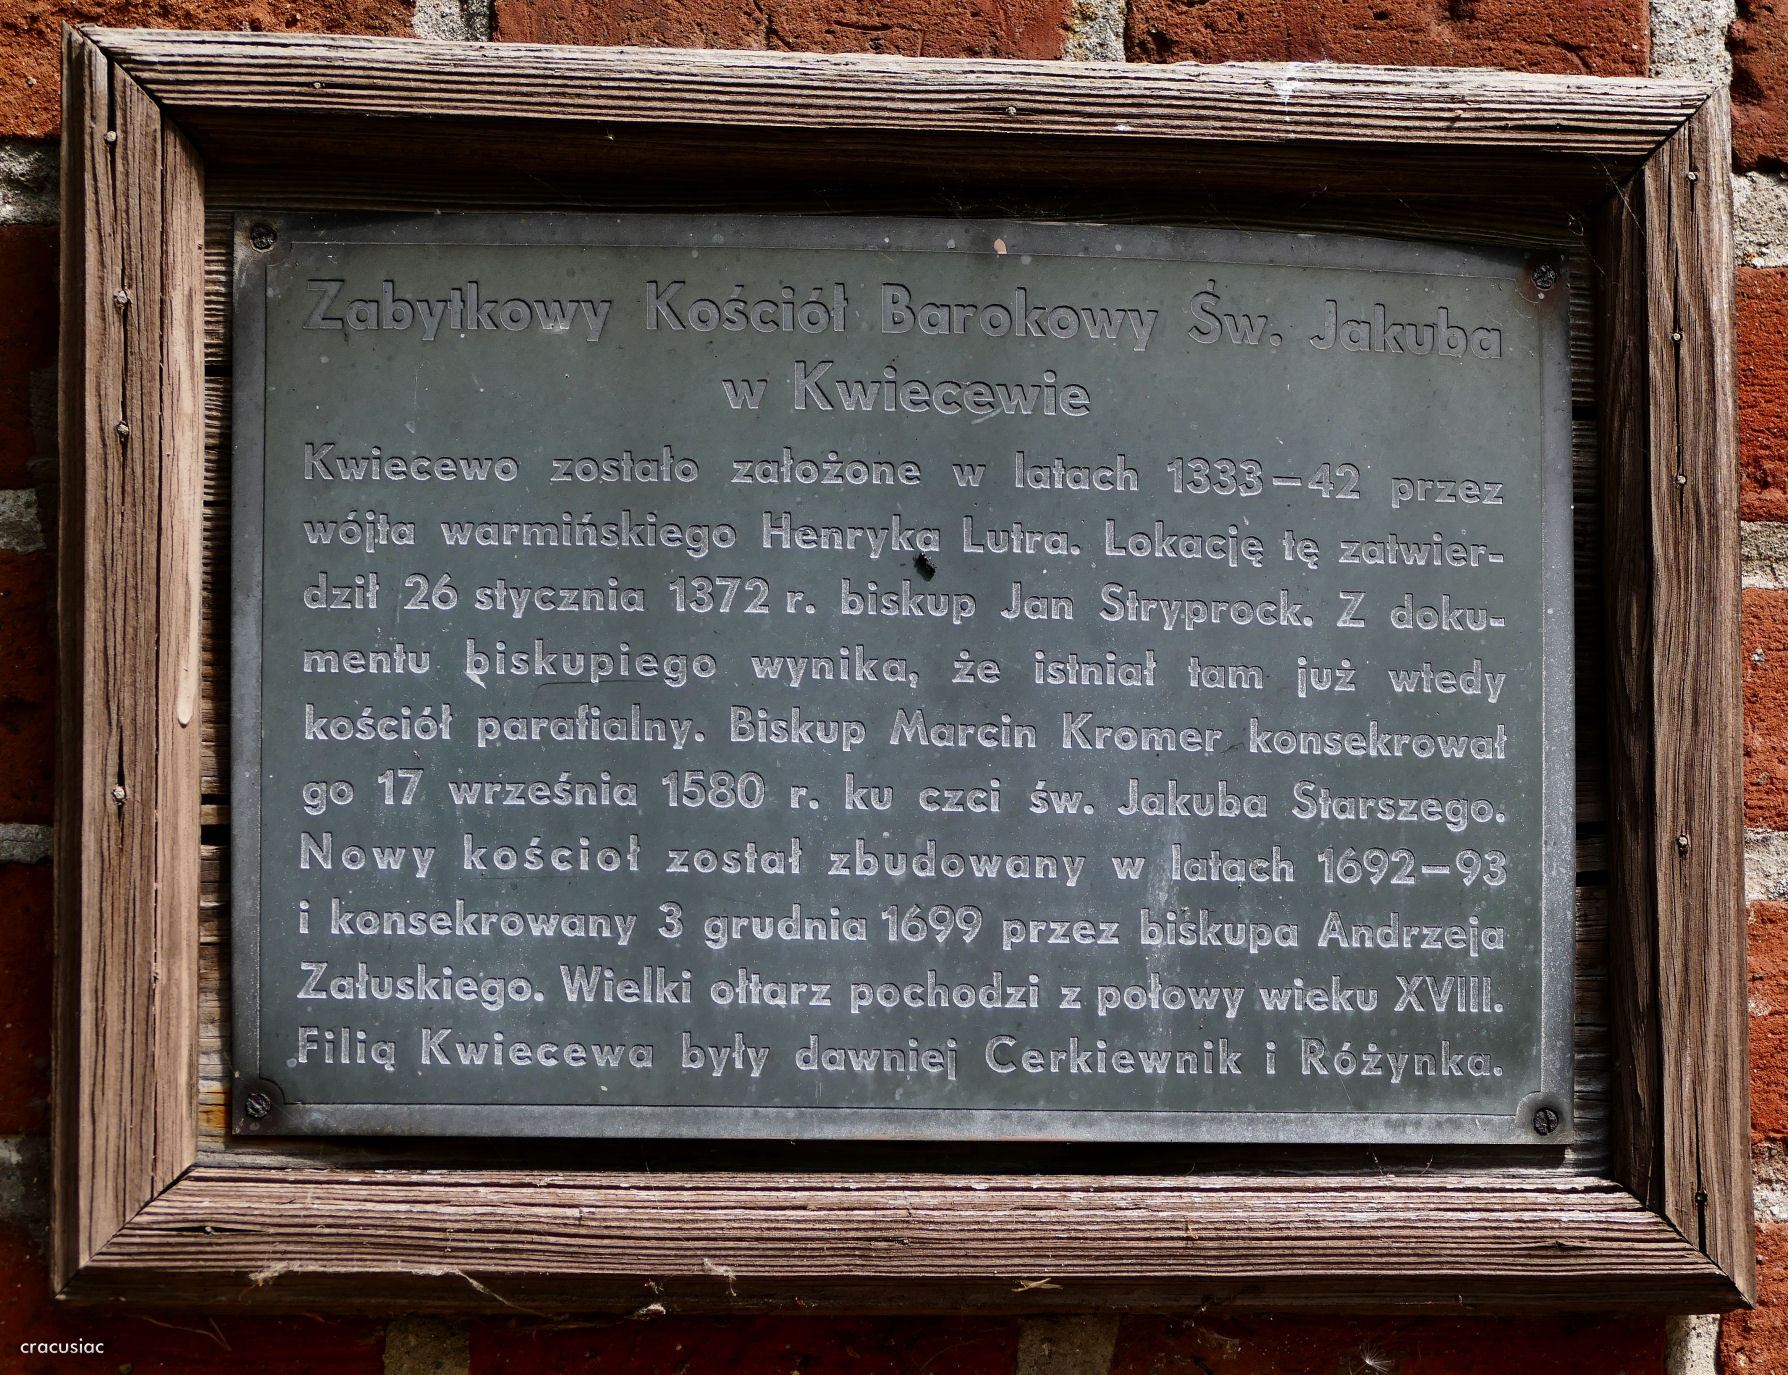 Zabytkowy Kościół Barokowy Św. Jakuba
w Kwiecewie
Kwiecewo zostało założone w latach 1333–42 przez
wójta warmińskiego Henryka Lutra. Lokację tę zatwier-
dził 26 stycznia 1372 r. biskup Jan Stryprock. Z doku-
mentu biskupiego wynika, że istniał tam już wtedy
kościół parafialny. Biskup Marcin Kromer konsekrował
go 17 września 1580 r. ku czci św. Jakuba Starszego.
Nowy kościoł został zbudowany w latach 1692–93
i konsekrowany 3 grudnia 1699 przez biskupa Andrzeja
Załuskiego. Wielki ołtarz pochodzi z połowy wieku XVIII.
Filią Kwiecewa były dawniej Cerkiewnik i Różynka.
cracusiac